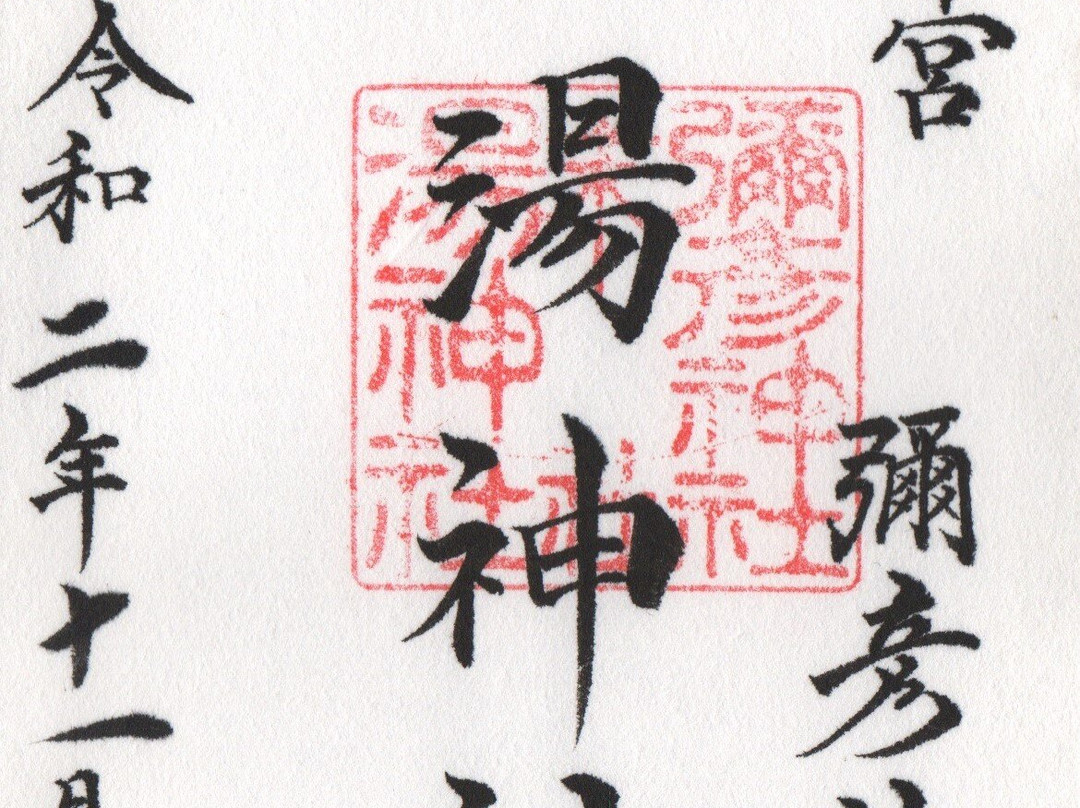 宮 彌彦
湯神
令和二年十一月
彌彦神社
湯神社